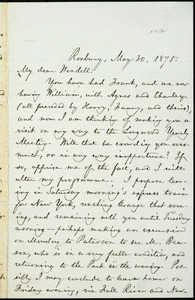 Roxbury, May 30, 1875.
My dear Wendell:
You have had Frank, and are now
having William, with Agnes and Charley,
(all preceded by Harry, Fanny, and theirs),
and now I am thinking of making you a
visit on my way to the Longwood Yearly
Meeting. Will that be crowding you over-
much, or in any way inopportune? If
so, apprise me of the fact, and I will
alter my programme. I propose leav-
ing in Saturday morning's express train
for New York, reaching Orange that even-
ing, and remaining with you until Tuesday
morning—perhaps making an excursion
on Monday to Paterson to see Mr.
who is in a very feeble condition, and
returning to the Park in the evening. Pos-
sibly I may conclude to leave home on
Friday evening, via Fall River and New